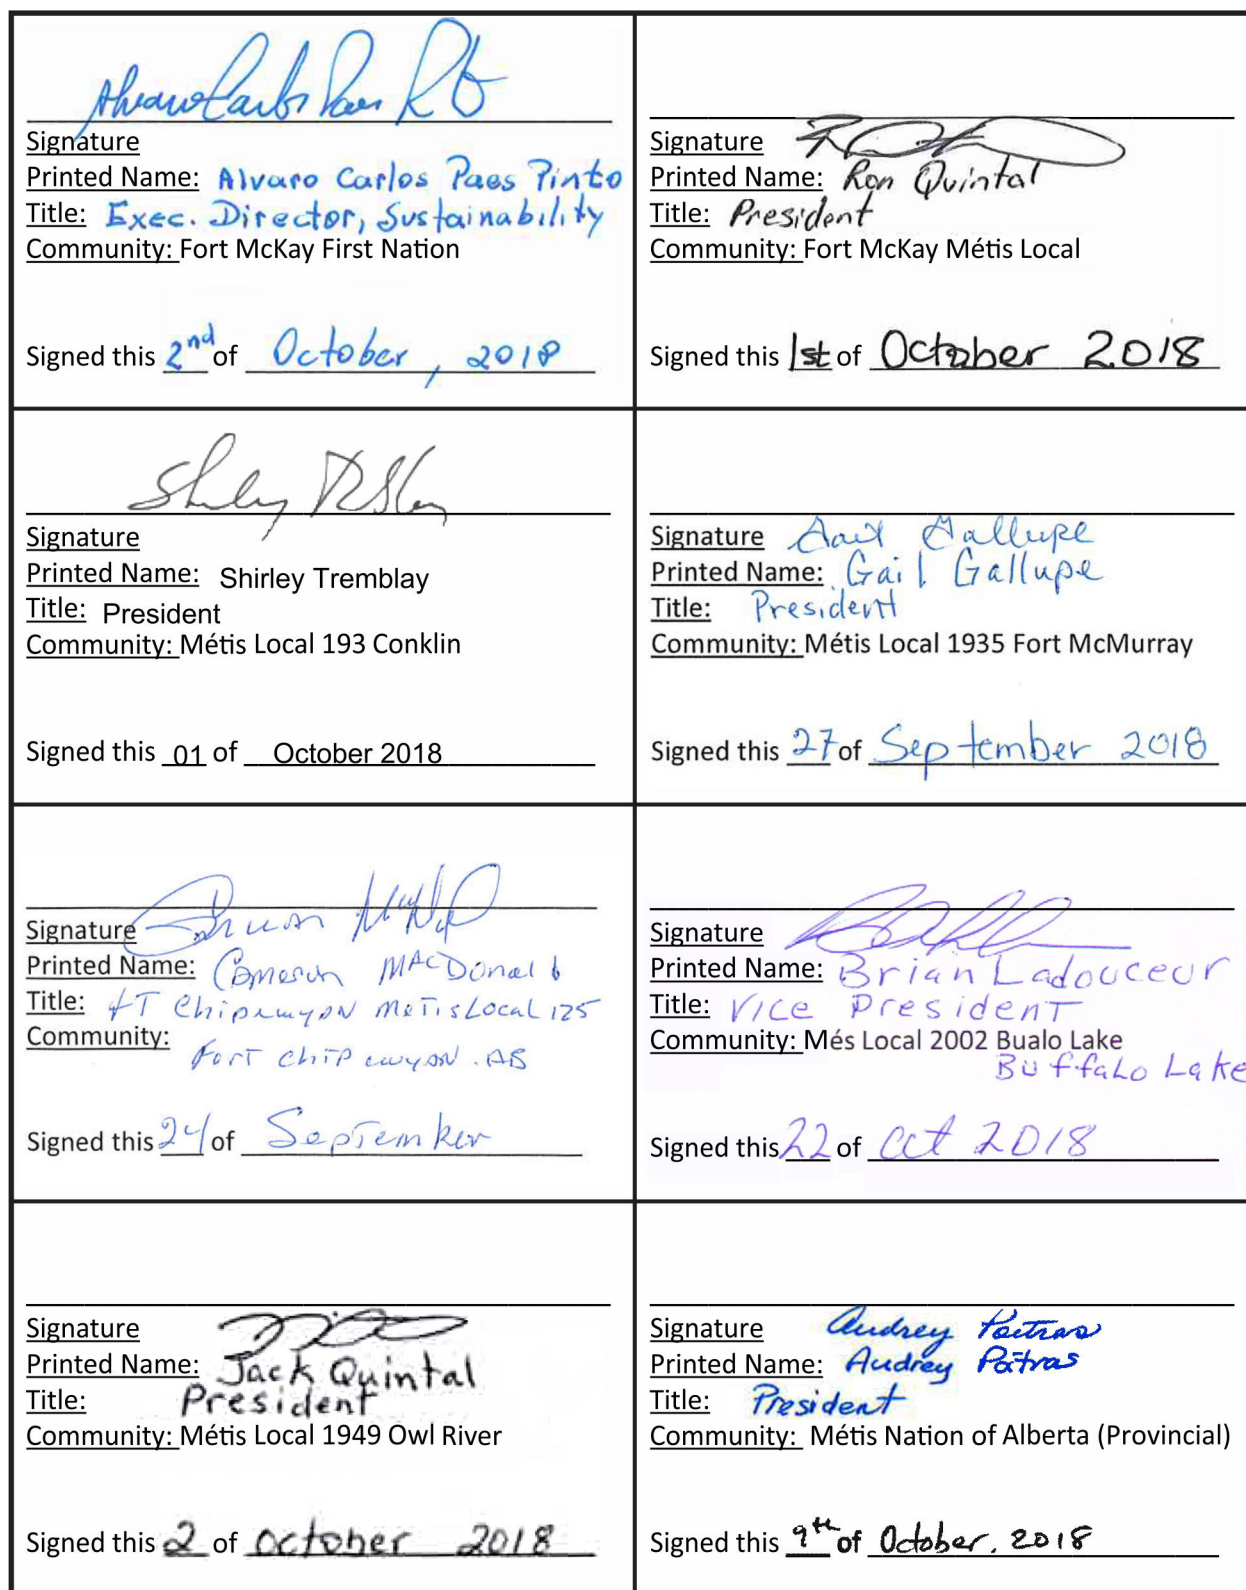 Signature
Printed Name: Alvaro Carlos Paes Pinto
Title: Exec. Director, Sustainability
Community: Fort McKay First Nation
Signed this 2nd of October, 2018
Signature
Printed Name: Ron Quintal
Title: President
Community: Fort McKay Métis Local
Signed this 1st of October 2018
Signature
Printed Name: Shirley Tremblay
Title: President
Community: Métis Local 193 Conklin
Signed this 01 of October 2018
Signature Gail Gallupe
Printed Name: Gail Gallupe
Title: President
Community: Métis Local 1935 Fort McMurray
Signed this 27 of September 2018
Signature
Printed Name: Cameron MacDonald
Title: FT Chipewyan MeTis Local 125
Community: Fort Chipewyan. AB
Signed this 24 of September
Signature
Printed Name: Brian Ladouceur
Title: Vice President
Community: Més Local 2002 Bualo Lake
Buffalo Lake
Signed this 22 of Oct 2018
Signature
Printed Name: Jack Quintal
Title: President
Community: Métis Local 1949 Owl River
Signed this 2 of October 2018
Signature Audrey Poitras
Printed Name: Audrey Poitras
Title: President
Community: Métis Nation of Alberta (Provincial)
Signed this 9th of October, 2018